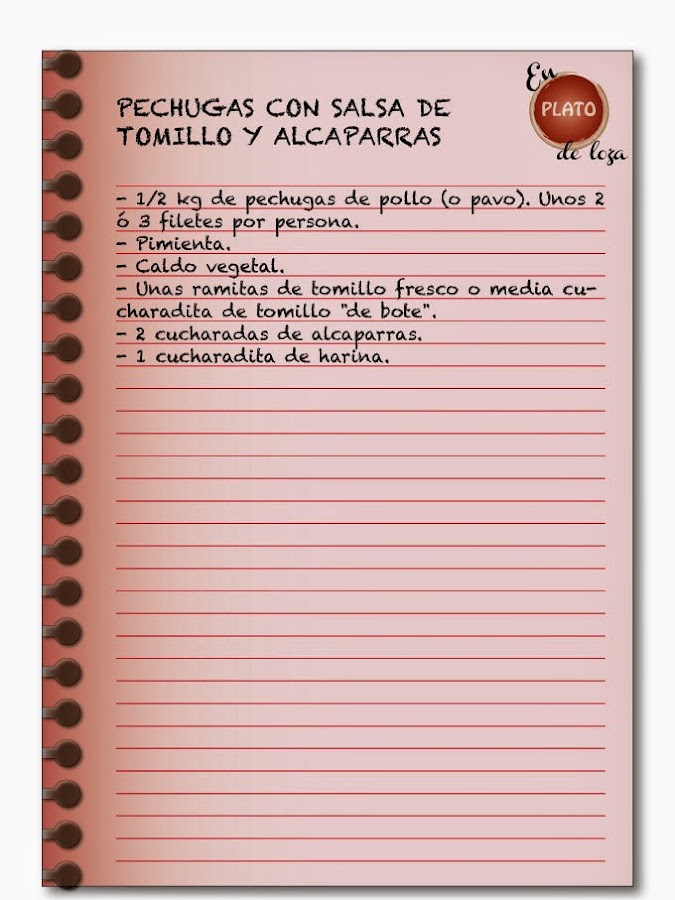 En
PLATO
de loza
PECHUGAS CON SALSA DE
TOMILLO Y ALCAPARRAS
- 1/2 kg de pechugas de pollo (o pavo). Unos 2
ó 3 filetes por persona.
- Pimienta.
- Caldo vegetal.
- Unas ramitas de tomillo fresco o media cu-
charadita de tomillo "de bote".
- 2 cucharadas de alcaparras.
- 1 cucharadita de harina.